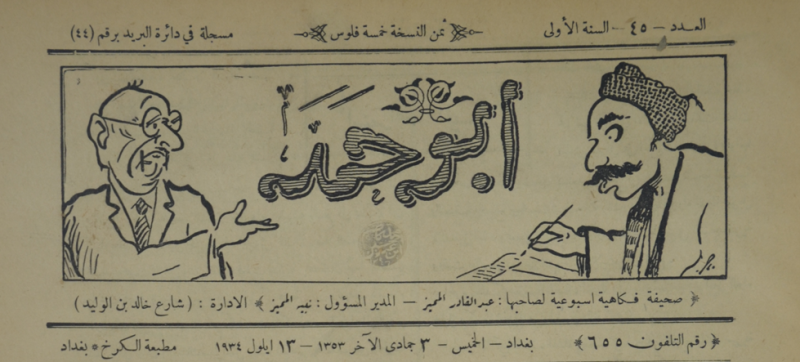 العـدد – ٤٥ – السنة الأولى
ثمن النسخة خمسة فلوس
مسجلة في دائرة البريد برقم (٤٤)
أبو حمد
صحيفة فكاهية اسبوعية لصاحبها : عبد القادر المميز – المدير المسؤول : نهيد المميز
الادارة : ( شارع خالد بن الوليد )
رقم التلفون ٦٥٥
بغداد – الخميس – ٣ جمادى الآخر ١٣٥٣ – ١٣ ايلول ١٩٣٤
مطبعة الكرخ • بغداد